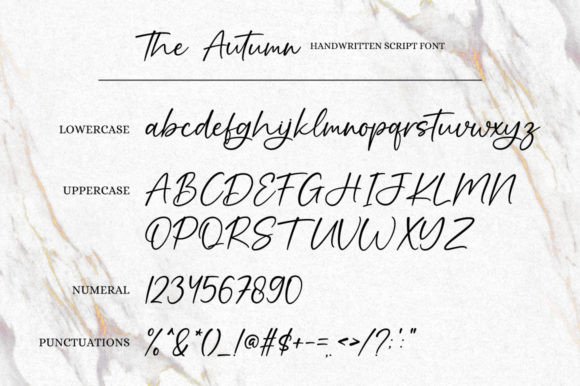 The Autumn HANDWRITTEN SCRIPT FONT
LOWERCASE abcdefghijklmnopqrstuvwxyz
UPPERCASE ABCDEFGHIJKLMN
OPQRSTUVWXYZ
NUMERAL 1234567890
PUNCTUATIONS %^&*()_!@#$+-=,.<>/?;':"